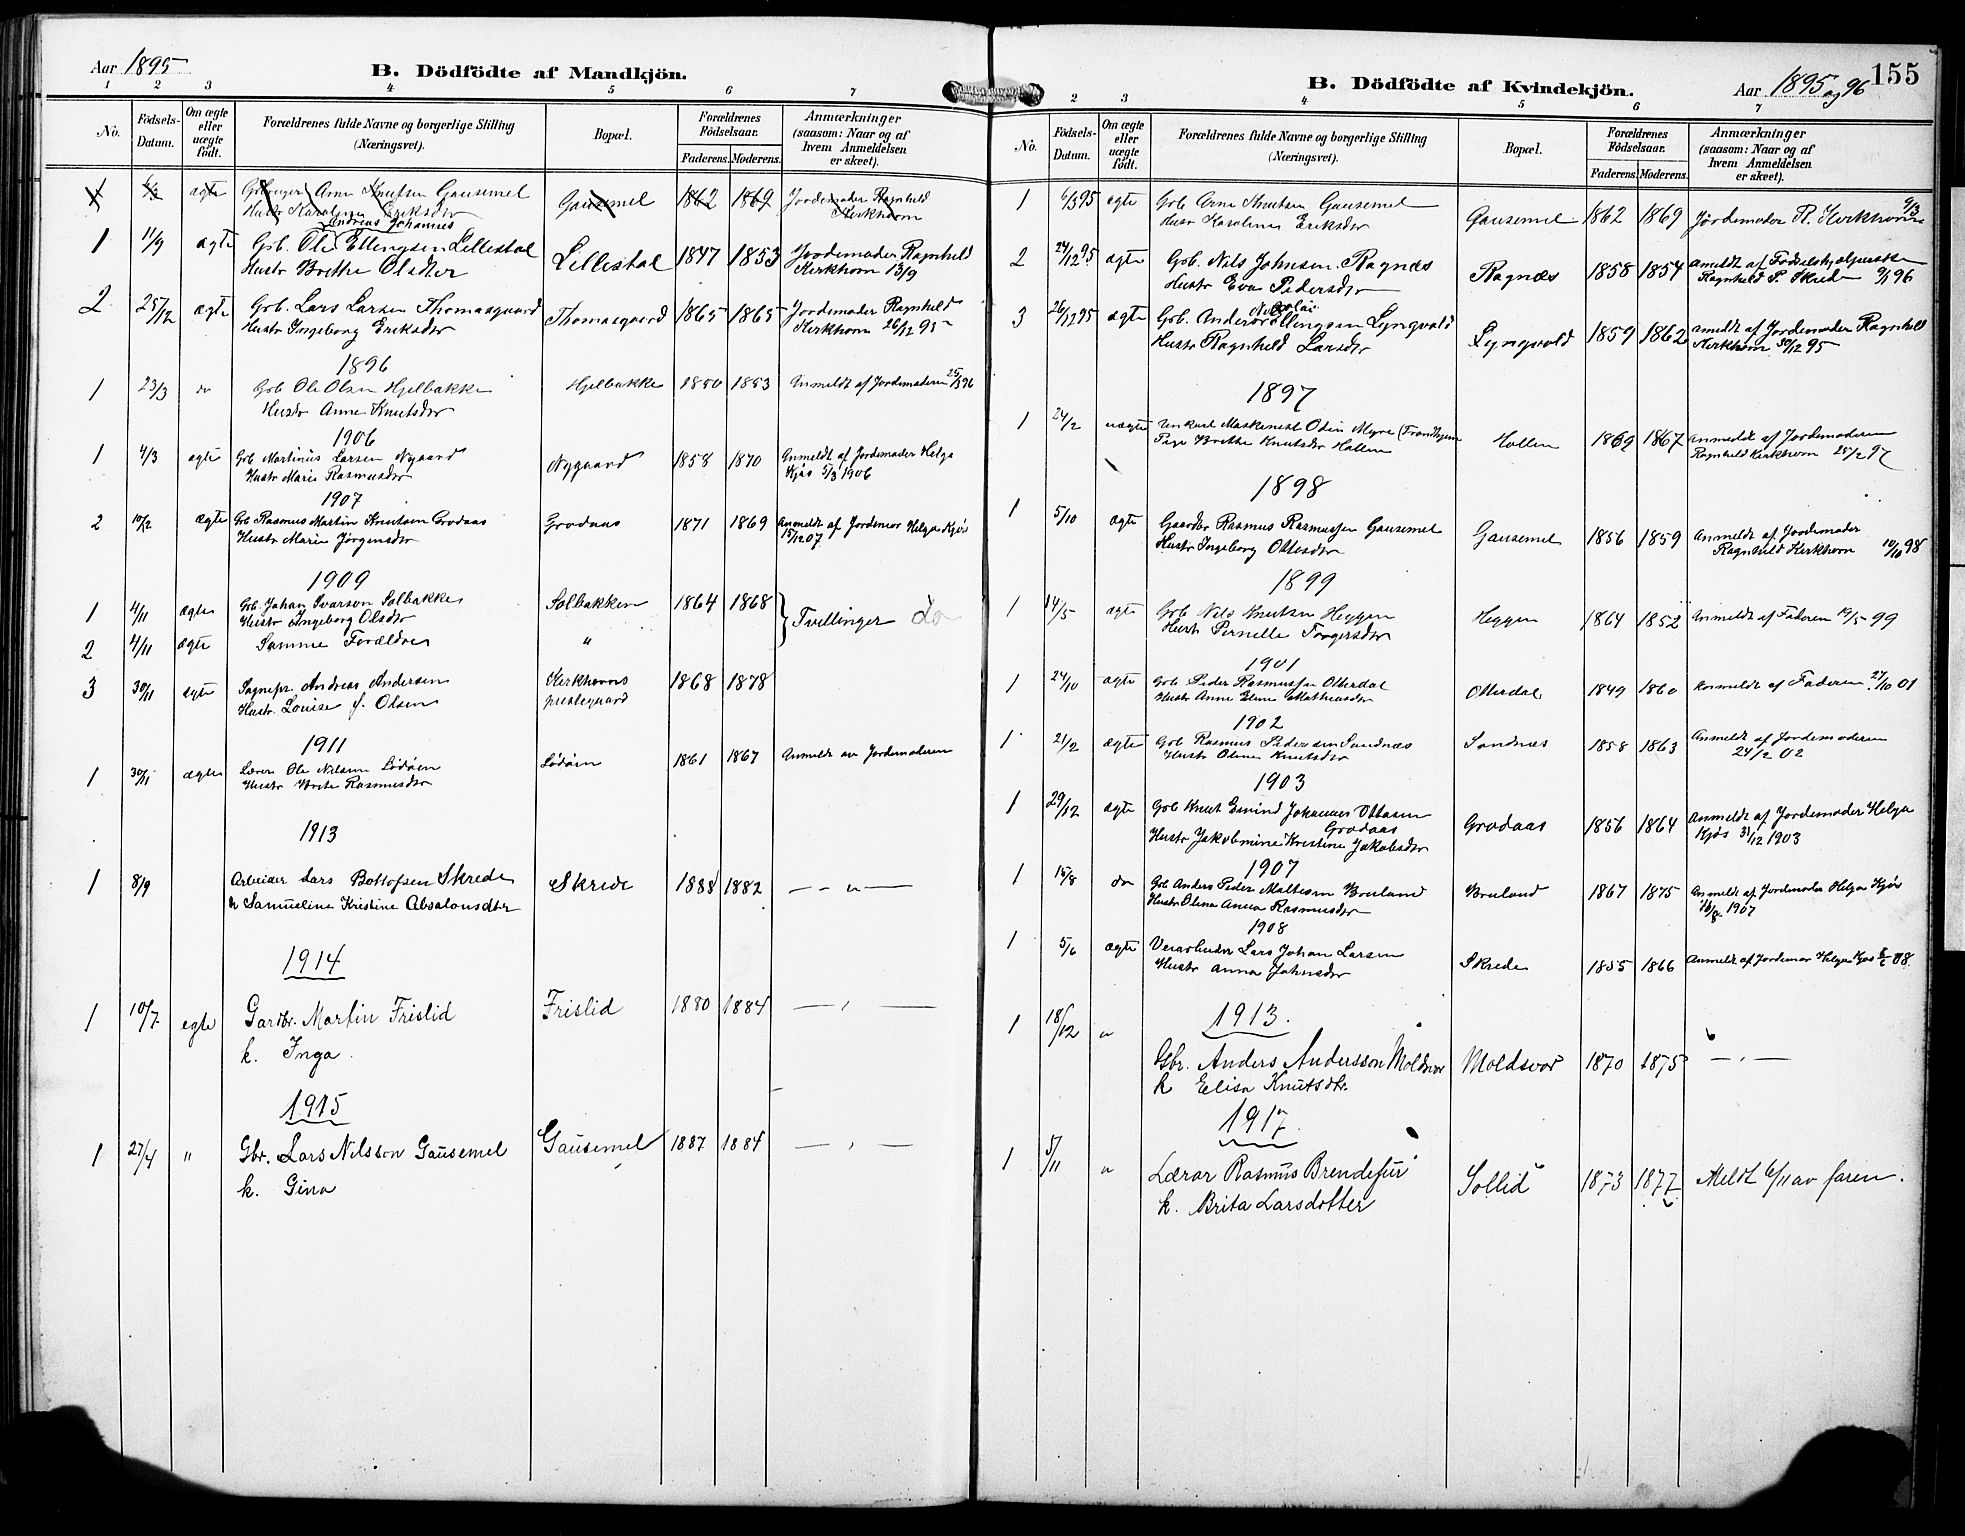 Aar 1895
B. Dödfödte af Mandkjön.
1 2 3 4 5 6 7
No.
Födsels-
Datum.
Om ægte
eller
uægte
födt.
Forældrenes fulde Navne og borgerlige Stilling
(Næringsvei).
Bopæl.
Forældrenes
Födselsaar.
Faderens. Moderens.
Anmærkninger
(saasom: Naar og af
hvem Anmeldelsen
er skeet).
1 6/3 ægte Gbruger Arne Knutsen Gausemel Gausemel 1862 1869 Jordemoder Ragnhild
Hustr Karolina Eriksdtr Kirkhorn
Andreas Johannes
1 11/9 ægte Grb. Ole Ellingsen Lillestøl Lillestøl 1847 1853 Jordemoder Ragnhild
Hustr Brethe Olsdter Kirkhorn 13/9
2 25/12 ægte Grb. Lars Larsen Thomasgaard Thomasgaard 1865 1865 Jordemoder Ragnhild
Hustr Ingeborg Eriksdtr Kirkhorn 26/12 95
1896
1 23/3 do Grb Ole Olsen Hjelbakke Hjelbakke 1850 1853 Anmeldt af Jordemoderen 25/3 96
Hustr Anne Knutsdtr
1906
1 4/3 ægte Grb Martinus Larsen Nygaard Nygaard 1858 1870 Anmeldt af Jordemoder Helga
Hustr Marie Rasmusdtr Kjøs 5/3 1906
1907
2 10/2 ægte Grb Rasmus Martin Knutsen Grodaas Grodaas 1871 1869 Anmeldt af Jordemor Helga Kjøs
Hustr Marie Jørgensdtr 15/12 07
1909
1 4/11 ægte Grb. Johan Ivarson Solbakken Solbakken 1864 1868 Tvillinger do
Hustr Ingeborg Olsdtr
2 4/11 ægte Samme Forældre "
3 30/11 ægte Sognepr. Andreas Andersen Kirkhorns 1868 1878
Hustr. Louise f. Olsen prestegaard
1911
1 30/1 ægte Lærer Ole Nilsen Lödöen Lödöen 1861 1867 Anmeldt av Jordemoderen
Hustr Brite Rasmusdtr
1913
1 8/9 Arbeider Lars Bottolfsen Skrede Skrede 1888 1882 — - " —
k Samueline Kristine Absalonsdtr
1914
1 10/7 egte Gardbr. Martin Frislid Frislid 1880 1884 — " —
k. Inga.
1915
1 27/4 " Gbr. Lars Nilsson Gausemel Gausemel 1887 1884 — " —
k. Gina
155
B. Dödfödte af Kvindekjön.
Aar 1895 og 96
2 3 4 5 6 7
No.
Födsels-
Datum.
Om ægte
eller
uægte
födt.
Forældrenes fulde Navne og borgerlige Stilling
(Næringsvei).
Bopæl.
Forældrenes
Födselsaar.
Faderens. Moderens.
Anmærkninger
(saasom: Naar og af
hvem Anmeldelsen
er skeet).
1 6/3 95 ægte Grb Arne Knutsen Gausemel Gausemel 1862 1869 Jordemoder R. Kirkhorn 9/3
Hustr Karolina Eriksdtr
2 24/12 95 ægte Grb. Nils Johnsen Ragnæs Ragnæs 1858 1854 Anmeldt af Fødselshjælperske
Hustr Eva Pedersdtr Ragnhild P. Skrede 9/1 96
Nicolai
3 26/12 95 ægte Grb. Anders Ellingsen Lyngvold Lyngvold 1859 1862 Anmeldt af Jordemoder Ragnhild
Hustr Ragnhild Larsdtr Kirkhorn 30/12 95
1897
1 24/2 uægte Unkarl Maskinist Odin Myre (Trondhjem Hollen 1869 1867 Anmeldt af Jordemoderen
Pige Brethe Knutsdtr Hollen Ragnhild Kirkhorn 25/2 97
1898
1 5/10 ægte Gaardbr Rasmus Rasmussen Gausemel Gausemel 1856 1859 Anmeldt af Jordemoder
Hustr Ingeborg Ottesdtr Ragnhild Kirkhorn 10/10 98
1899
1 14/5 ægte Grb Nils Knutsen Heggen Heggen 1864 1852 Anmeldt af Faderen 19/5 99
Hustr Pernille Torgersdtr
1901
1 24/10 ægte Grb. Peder Rasmussen Otterdal Otterdal 1849 1860 Anmeldt af Faderen 27/10 01
Hustr Anne Eline Mathiasdtr
1902
1 21/2 ægte Grb Rasmus Pedersen Sandnæs Sandnæs 1858 1863 Anmeldt af Jordemoderen
Hustr Oline Knutsdtr 24/2 02
1903
1 29/12 ægte Grb Knut Eivind Johannes Ottesen Grodaas 1856 1864 Anmeldt af Jordemoder Helga
Grodaas
Hustr Jakobmine Kristine Jakobsdtr Kjøs 31/12 1903
1907
1 15/8 do Grb Anders Peder Maltesen Bruland Bruland 1867 1875 Anmeldt af Jordemoder Helga Kjøs
Hustr Olina Anna Rasmusdtr 16/8 1907
1908
1 5/6 ægte Veiarbeider Lars Johan Larsen Skrede 1855 1866 Anmeldt af Jordemor Helga Kjøs 8/6 08
Hustr Anna Johnsdtr
1913.
1 18/12 " Gbr. Anders Andersson Moldsvor Moldsvor 1870 1875 — " —
k Elisa Knutsdtr.
1917.
1 5/11 " Lærar Rasmus Brendefur Sollid 1873 1877 Meldt 6/11 av faren.
k. Brita Larsdotter